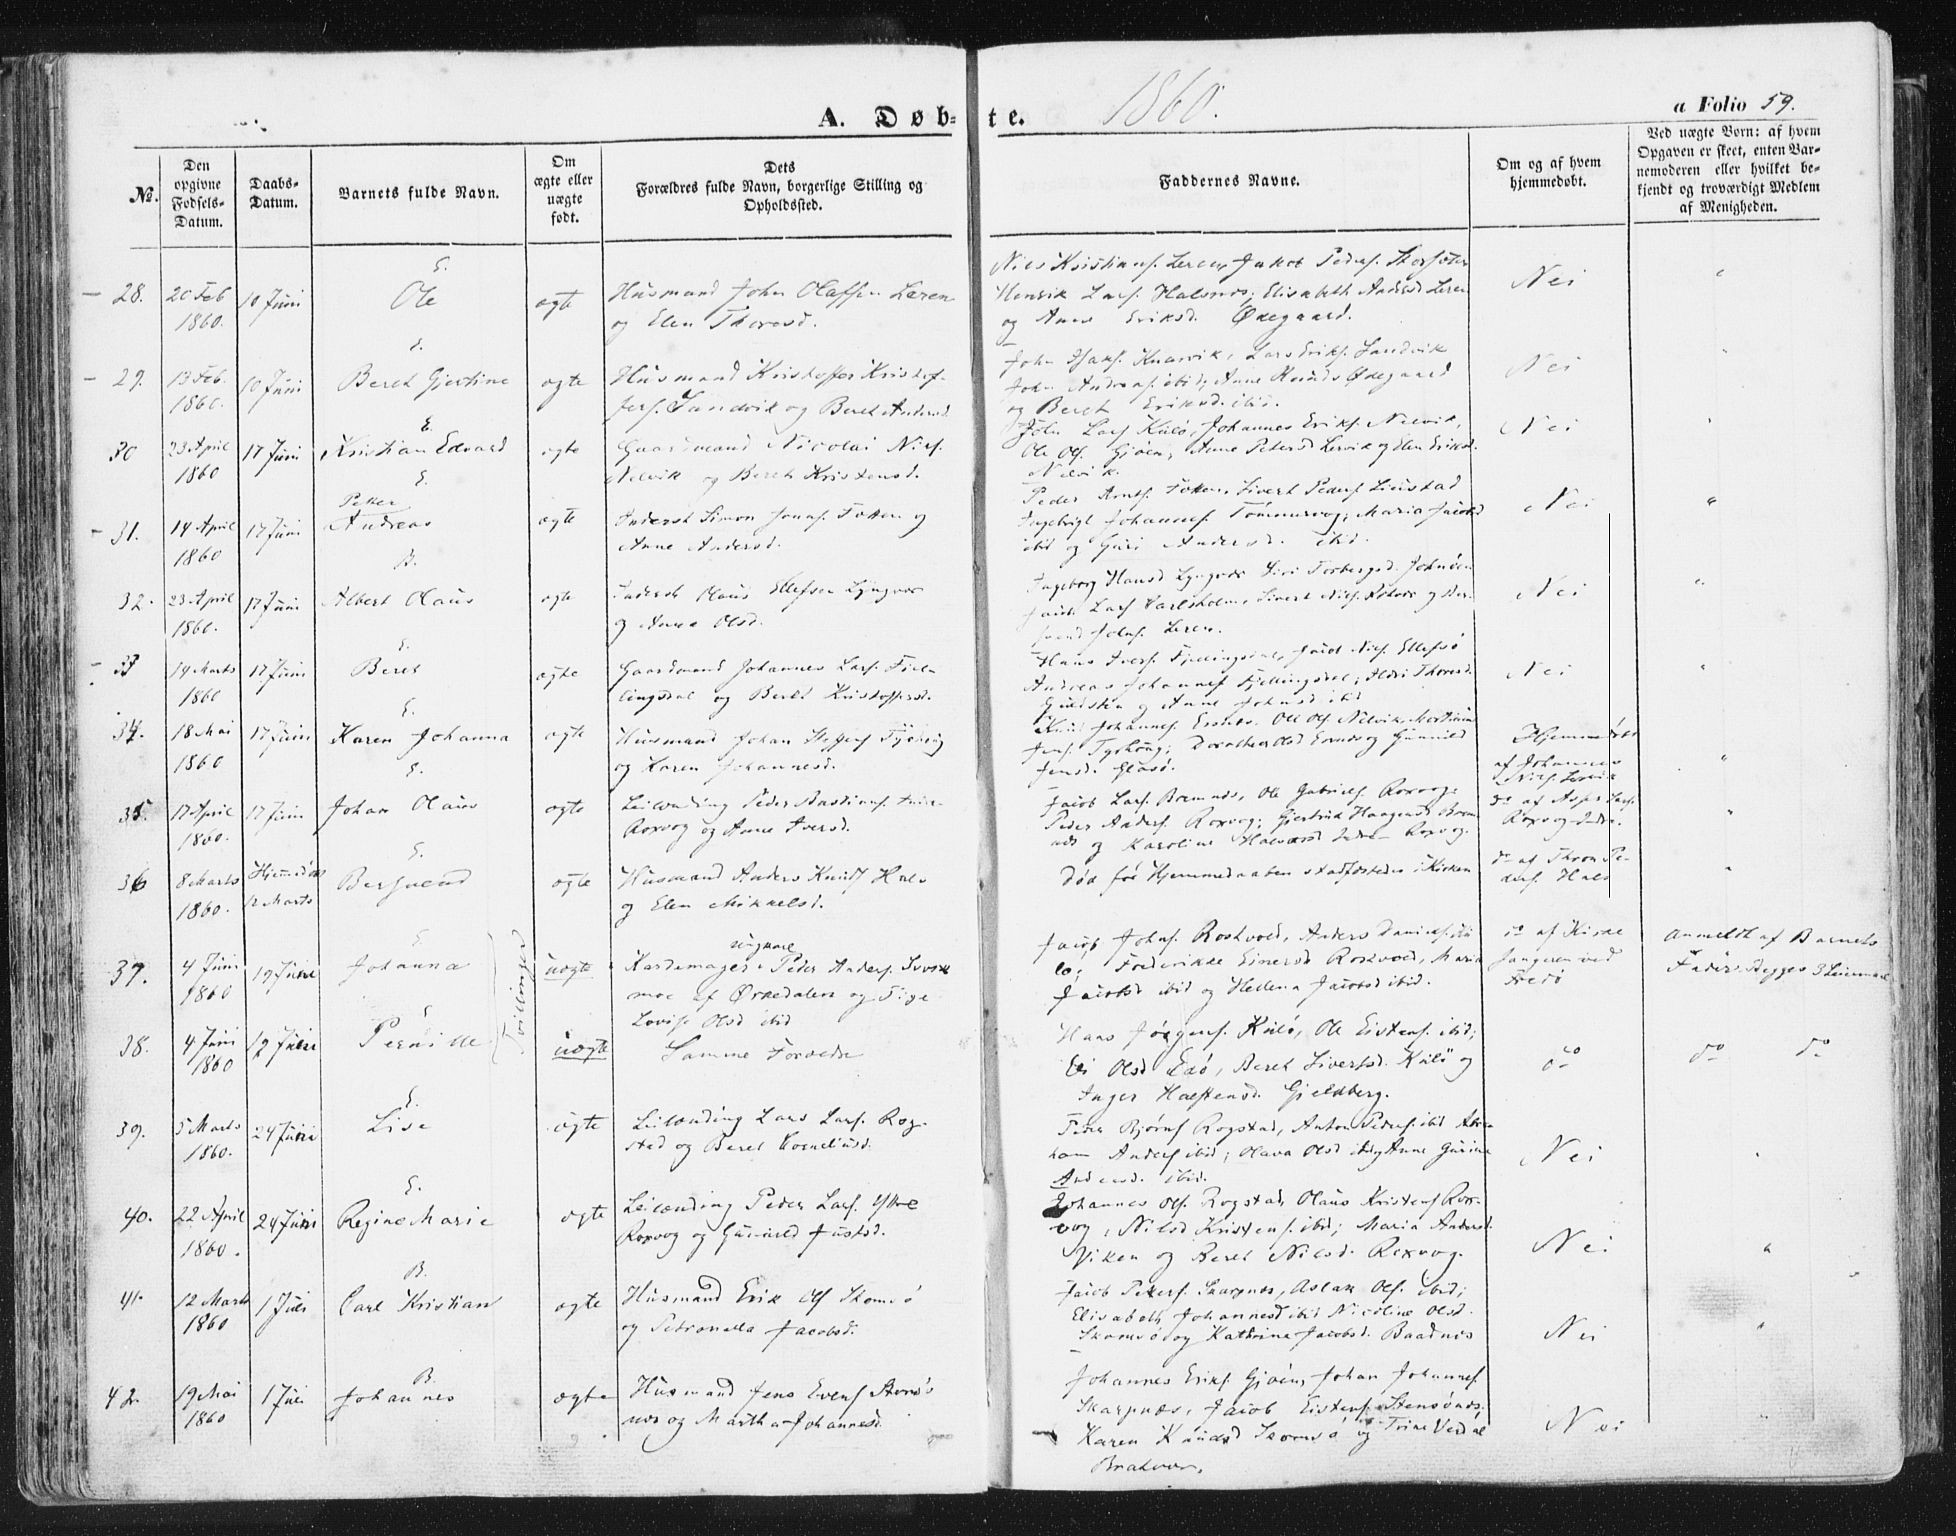 A. Døb- te. 1860. a Folio 59.
№.
Den opgivne Fødsels-Datum.
Daabs-Datum.
Barnets fulde Navn.
Om ægte eller uægte født.
Dets Forældres fulde Navn, borgerlige Stilling og Opholdssted.
Faddernes Navne.
Om og af hvem hjemmedøbt.
Ved uægte Born: af hvem Opgaven er skeet, enten Barnemoderen eller hvilket bekjendt og troværdigt Medlem af Menigheden.
E.
28. 20 Feb 1860. 10 Juni Ole ægte Husmand John Olafsen Leren
og Elen Thoresd.
Niels Kristians. Leren, Jakob Peders.
Henrik Lars. Halsnes, Elisabeth Andersd Leren
og Anne Eriksd. Ødegaard.
Nei "
29. 13 Feb. 1860. 10 Juni Beret Gjertine ægte Husmand Kristoffer Kristof-
fers. Sandvik og Beret Andersd.
John Isaks. Knarvik, Lars Eriks. Sandvik
John Anders. ibid, Anne Knudsd Ødegaard
og Beret Eriksd. ibid.
Nei "
E.
30 23 April 1860 17 Juni Kristian Edvard ægte Gaardmand Nicolai Niels.
Nelvik og Beret Kristensd.
John Lars. Kulø, Johannes Eriks. Nelvik,
Ole Ols. Gjøen, Anne Pedersd Lervik og Elen Eriksd.
Nelvik.
Nei "
E.
31. 14 April 1860 17 Juni Petter
Andreas ægte Inderst Simon Jonas.
Anne Andersd.
Peder Arnts. Sivert Peders.
Ingebrigt Johannes. Tømmervog, Maria Jacobsd
ibid og Guri Andersd. ibid.
Nei "
B.
32. 23 April 1860. 17 Juni Albert Olaus ægte Inderst Olaus Ellefsen Lyngvær
og Anna Olsd.
Ingeborg Hansd Lyngvær Siri Torbergsd. Johnøen
Lars. Karlsholm, Sivert Niels. og Ber-
svend Johns. Leren.
Nei "
E.
33 14 Marts 1860 17 Juni Beret ægte Gaardmand Johannes Lars. Fjel-
lingsdal og Beret Kristoffersd.
Hans Ivers. Fjellingsdal, Niels. Ellefsø
Andreas Johannes. Fjellingsdal; Thoresd.
Guldsten og Anne Johnsd ibid
Nei "
E.
34. 18 Mai 1860 17 Juni Karen Johanna ægte Husmand Johan Tyrhoug
og Karen Johannesd.
Knud Johannes. Ersnes. Ole Ols. Nelvik, Martinus
Jens. Tyrhoug; Dorothea Olsd Ersnes og Gunnild
Jensd. Glasø.
Hjemmedøbt
af Johannes
Niels. Lervik "
E.
35. 17 April 1860. 17 Juni Johan Olaus ægte Leilænding Peder Bastians. Indre-
Roxvog og Anne Iversd.
Jacob Lars. Bremnes, Ole Gabriels. Roxvog
Peder Anders. Roxvog; Gjertrud Haagensd Brem-
nes og Karoline Halvorsd Indre Roxvog.
do af Asper Lars.
Roxvog Indre. "
E.
36 8 Marts 1860. Hjemmedøbt
12 Marts Bersvend ægte Husmand Anders Knuds. Hals
og Elen Mikkelsd.
Død før Hjemmedaaben stadfæstedes i Kirken
do af Thron Pe-
ders. Hals "
E.
37. 4 Juni 1860 19 Juni Johanna Tvillinger uægte Kardemager ungkarl Peder Anders. Svors-
moe af Ørkedalen og Pige
Lovise Olsd ibid
Jacob Johns. Roskvold, Anders Daniels. Ku-
lø; Frederikke Einersd Roskvold, Maria
Jacobsd ibid og Hellena Jacobsd ibid.
do af Kirke
sangeren ved
Fredø
anmeldt af Barnets
Fader. Begges 3 Leiermaal
E
38. 4 Juni 1860 19 Juni Pernille uægte Samme Forældre
Hans Jørgens. Kulø, Ole Eistens. ibid;
Eli Olsd Edø, Beret Sivertsd. Kulø og
Inger Halstensd. Gjeldberg.
do do do
E.
39. 5 Marts 1860. 24 Juni Lise ægte Leilænding Lars Lars. Rog-
stad og Beret Corneliusd.
Peder Bjørns. Rogstad, Anton Peders. ibid Abra
ham Anders. ibid; Olava Olsd ibid og Anne Gurine
Andersd. ibid.
Nei "
E.
40. 22 April 1860. 24 Juni Regine Marie ægte Leilænding Peder Lars. Yttre
Roxvog og Gunnild Justsd.
Johannes Ols. Rogstad, Olaus Kristens. Rox-
vog, Nils Kristens. ibid; Maria Andersd.
Viken og Beret Nilsd. Roxvog.
Nei "
B.
41. 12 Marts 1860 1 Juli Carl Kristian ægte Husmand Erik Ols. Skomsø
og Petronella Jacobsd.
Jacob Peders. Skarpnes, Aslak Ols. ibid;
Elisabeth Johannesd ibid Nicoline Olsd.
Skomsø og Kathrine Jacobsd. Baadnes
Nei "
B.
42. 19 Mai 1860 1 Juli Johannes ægte Husmand Jens Evens. Stensø-
nes og Martha Johannesd.
Johannes Eriks. Gjøen, Johan Johannes.
Skarpnæs, Jacob Eistens. Stensønes;
Karen Knudsd Skomsø og Trine Verdal
Brattvær.
Nei "